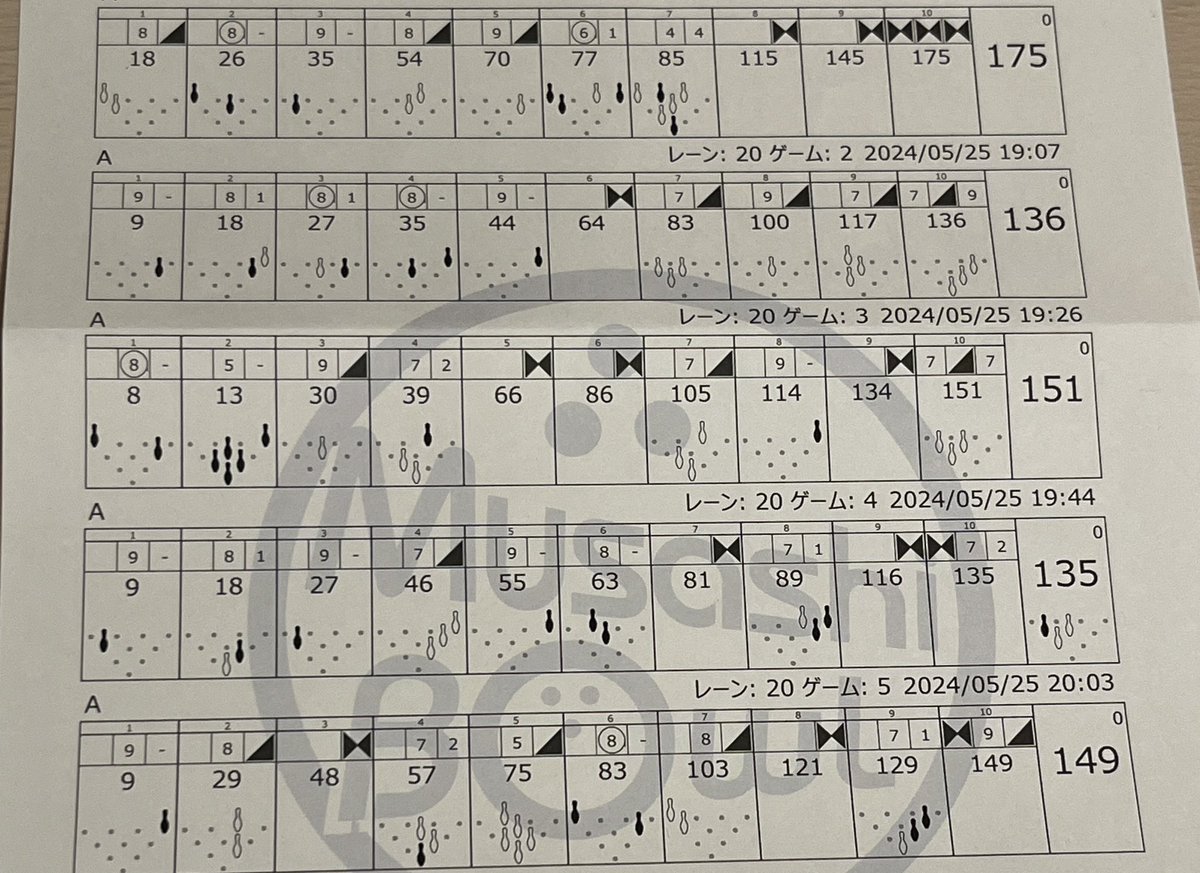 1 2 3 4 5 6 7 8 9 10
8 ⑧ - 9 - 8 9 ⑥ 1 4 4 0
18 26 35 54 70 77 85 115 145 175 175
A レーン: 20 ゲーム: 2 2024/05/25 19:07
1 2 3 4 5 6 7 8 9 10
9 - 8 1 ⑧ 1 ⑧ - 9 - 7 9 7 7 9 0
9 18 27 35 44 64 83 100 117 136 136
A レーン: 20 ゲーム: 3 2024/05/25 19:26
1 2 3 4 5 6 7 8 9 10
⑧ - 5 - 9 7 2 7 9 - 7 7 0
8 13 30 39 66 86 105 114 134 151 151
A レーン: 20 ゲーム: 4 2024/05/25 19:44
1 2 3 4 5 6 7 8 9 10
9 - 8 1 9 - 7 9 - 8 - 7 1 7 2 0
9 18 27 46 55 63 81 89 116 135 135
Musashi
A レーン: 20 ゲーム: 5 2024/05/25 20:03
1 2 3 4 5 6 7 8 9 10
9 - 8 7 2 5 ⑧ - 8 7 1 9 0
9 29 48 57 75 83 103 121 129 149 149
BOWl